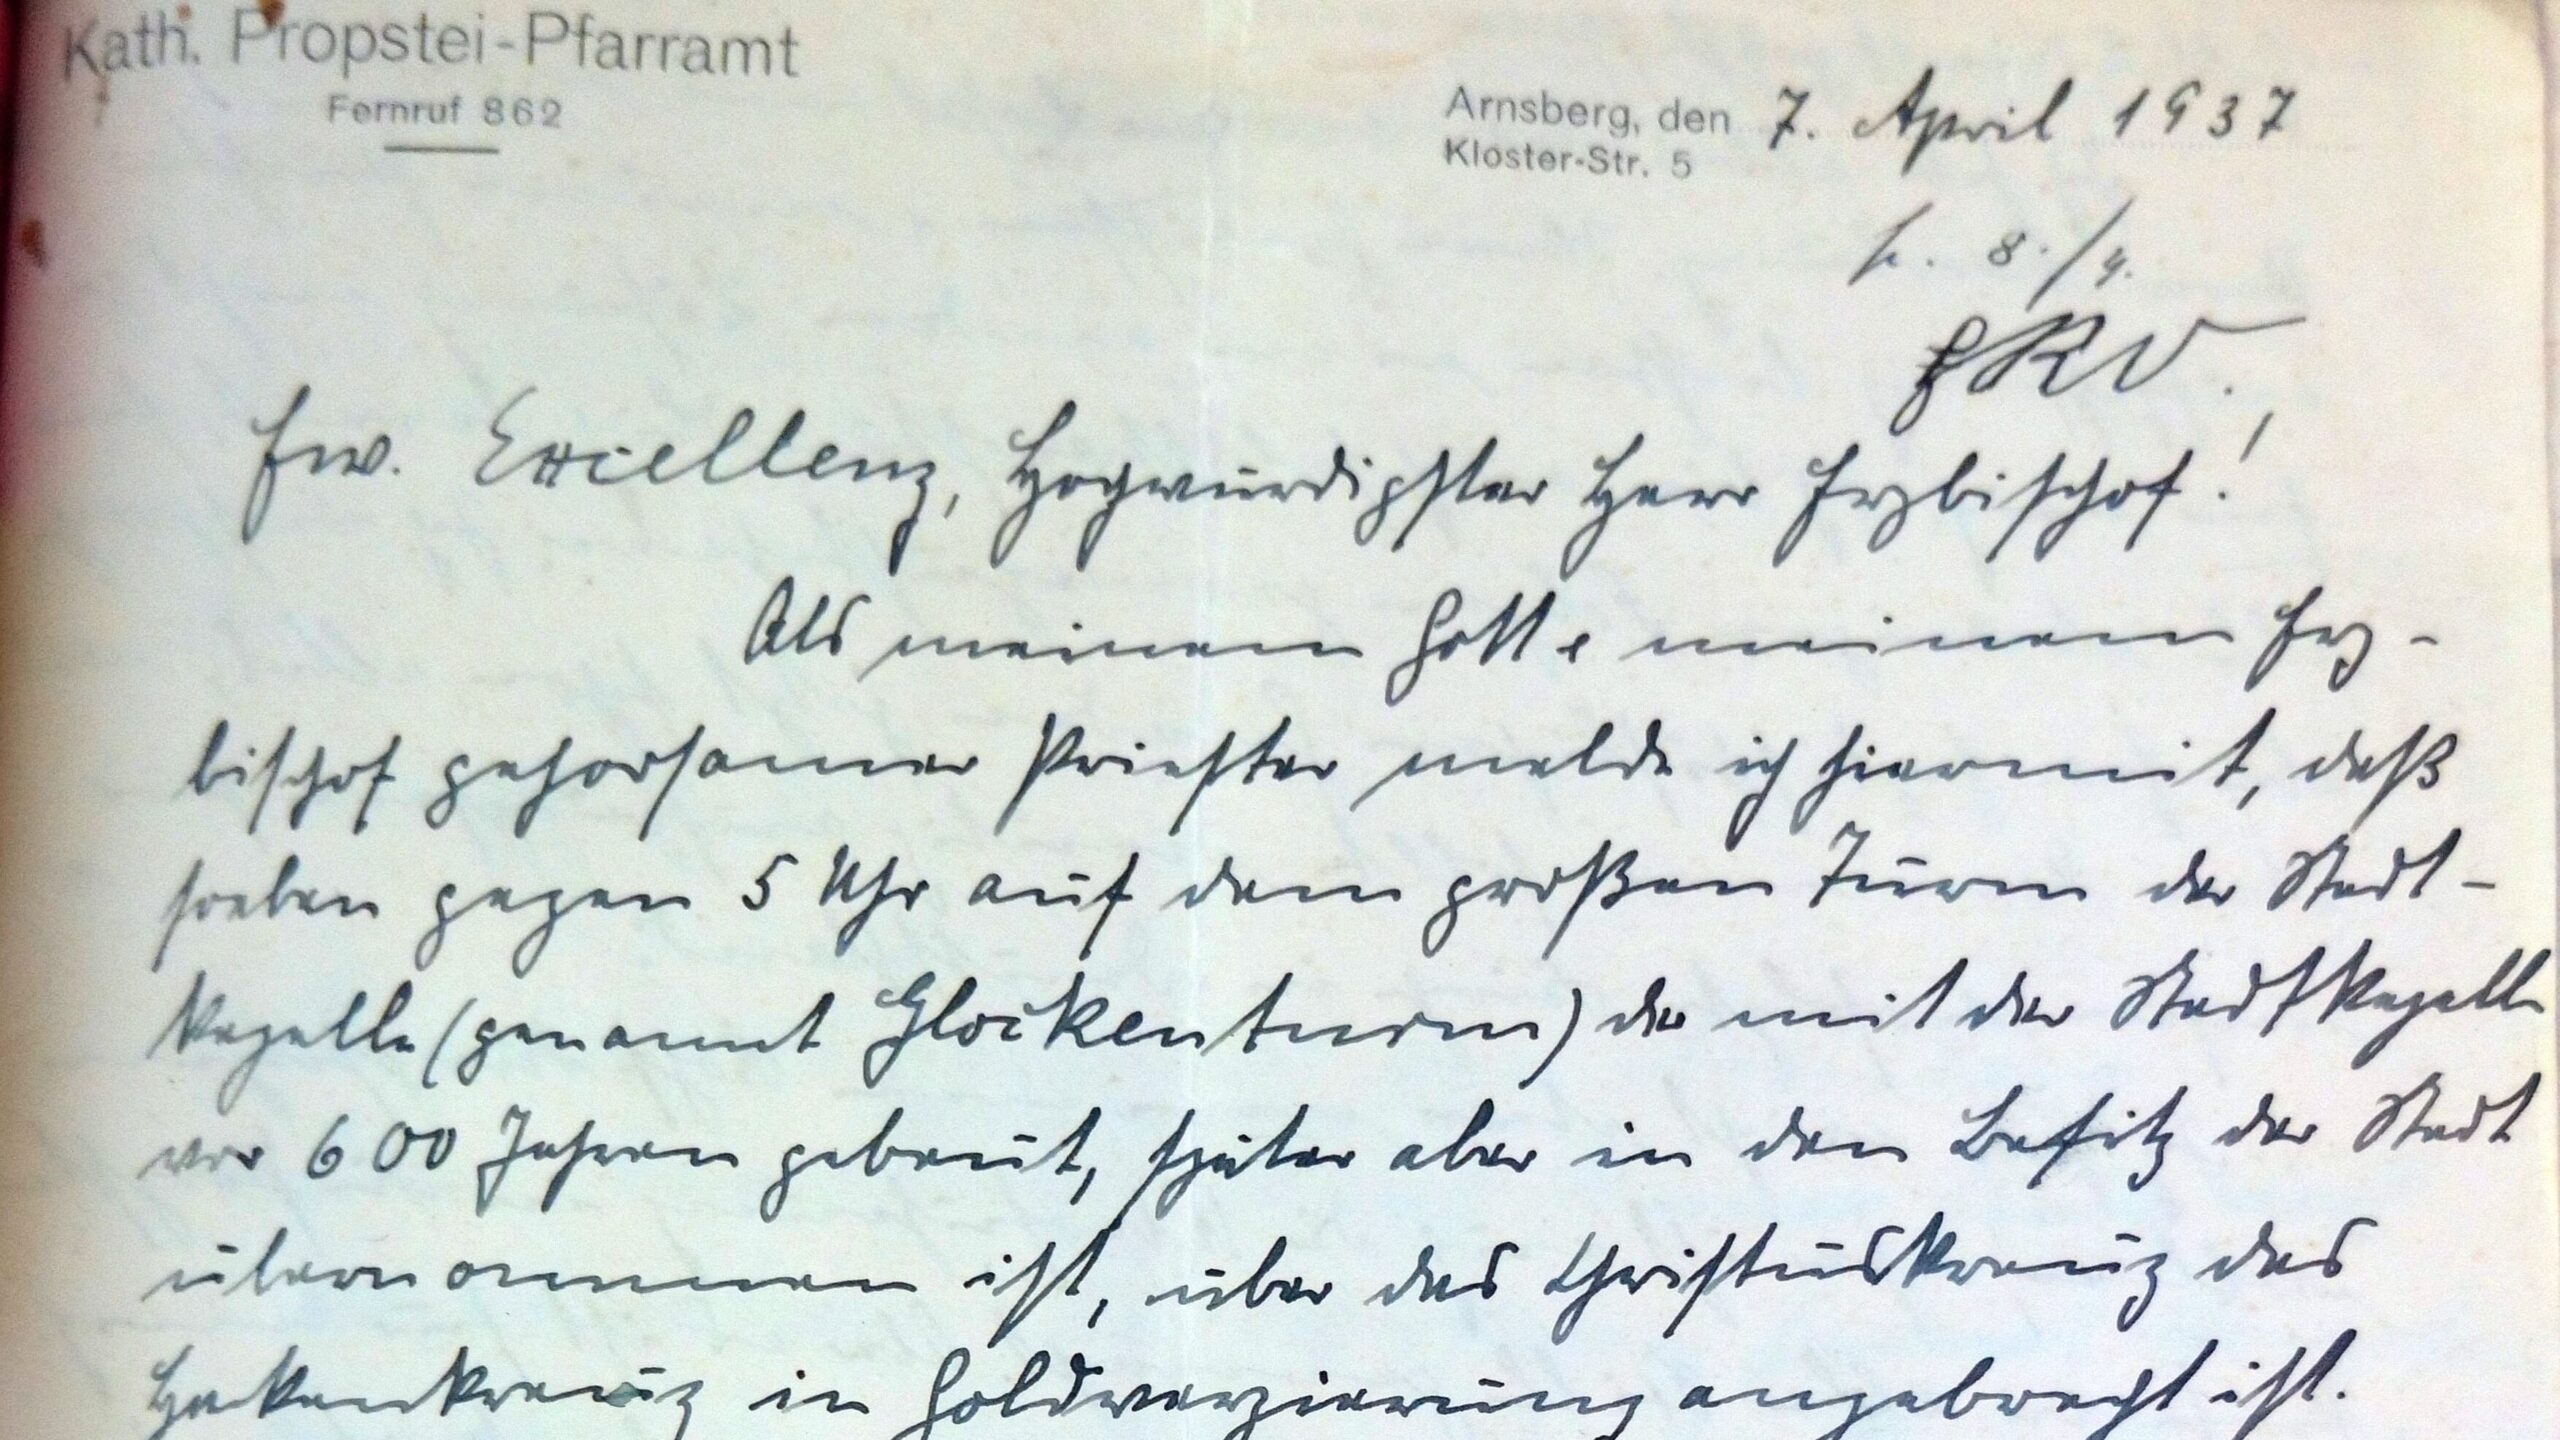 Kath. Propstei-Pfarramt
Fernruf 862
Arnsberg, den 7. April 1937
Kloster-Str. 5
8./4.
Ew. Excellenz, Hochwürdigster Herr Erzbischof!
Als meinem Gott u. meinem Erz-
bischof gehorsamer Priester melde ich hiermit, daß
soeben gegen 5 Uhr auf dem großen Turm der Stadt-
kapelle (genannt Glockenturm) der mit der Stadtkapelle
vor 600 Jahren gebaut, später aber in den Besitz der Stadt
übernommen ist, über das Christuskreuz das
Hakenkreuz in Goldverzierung angebracht ist.